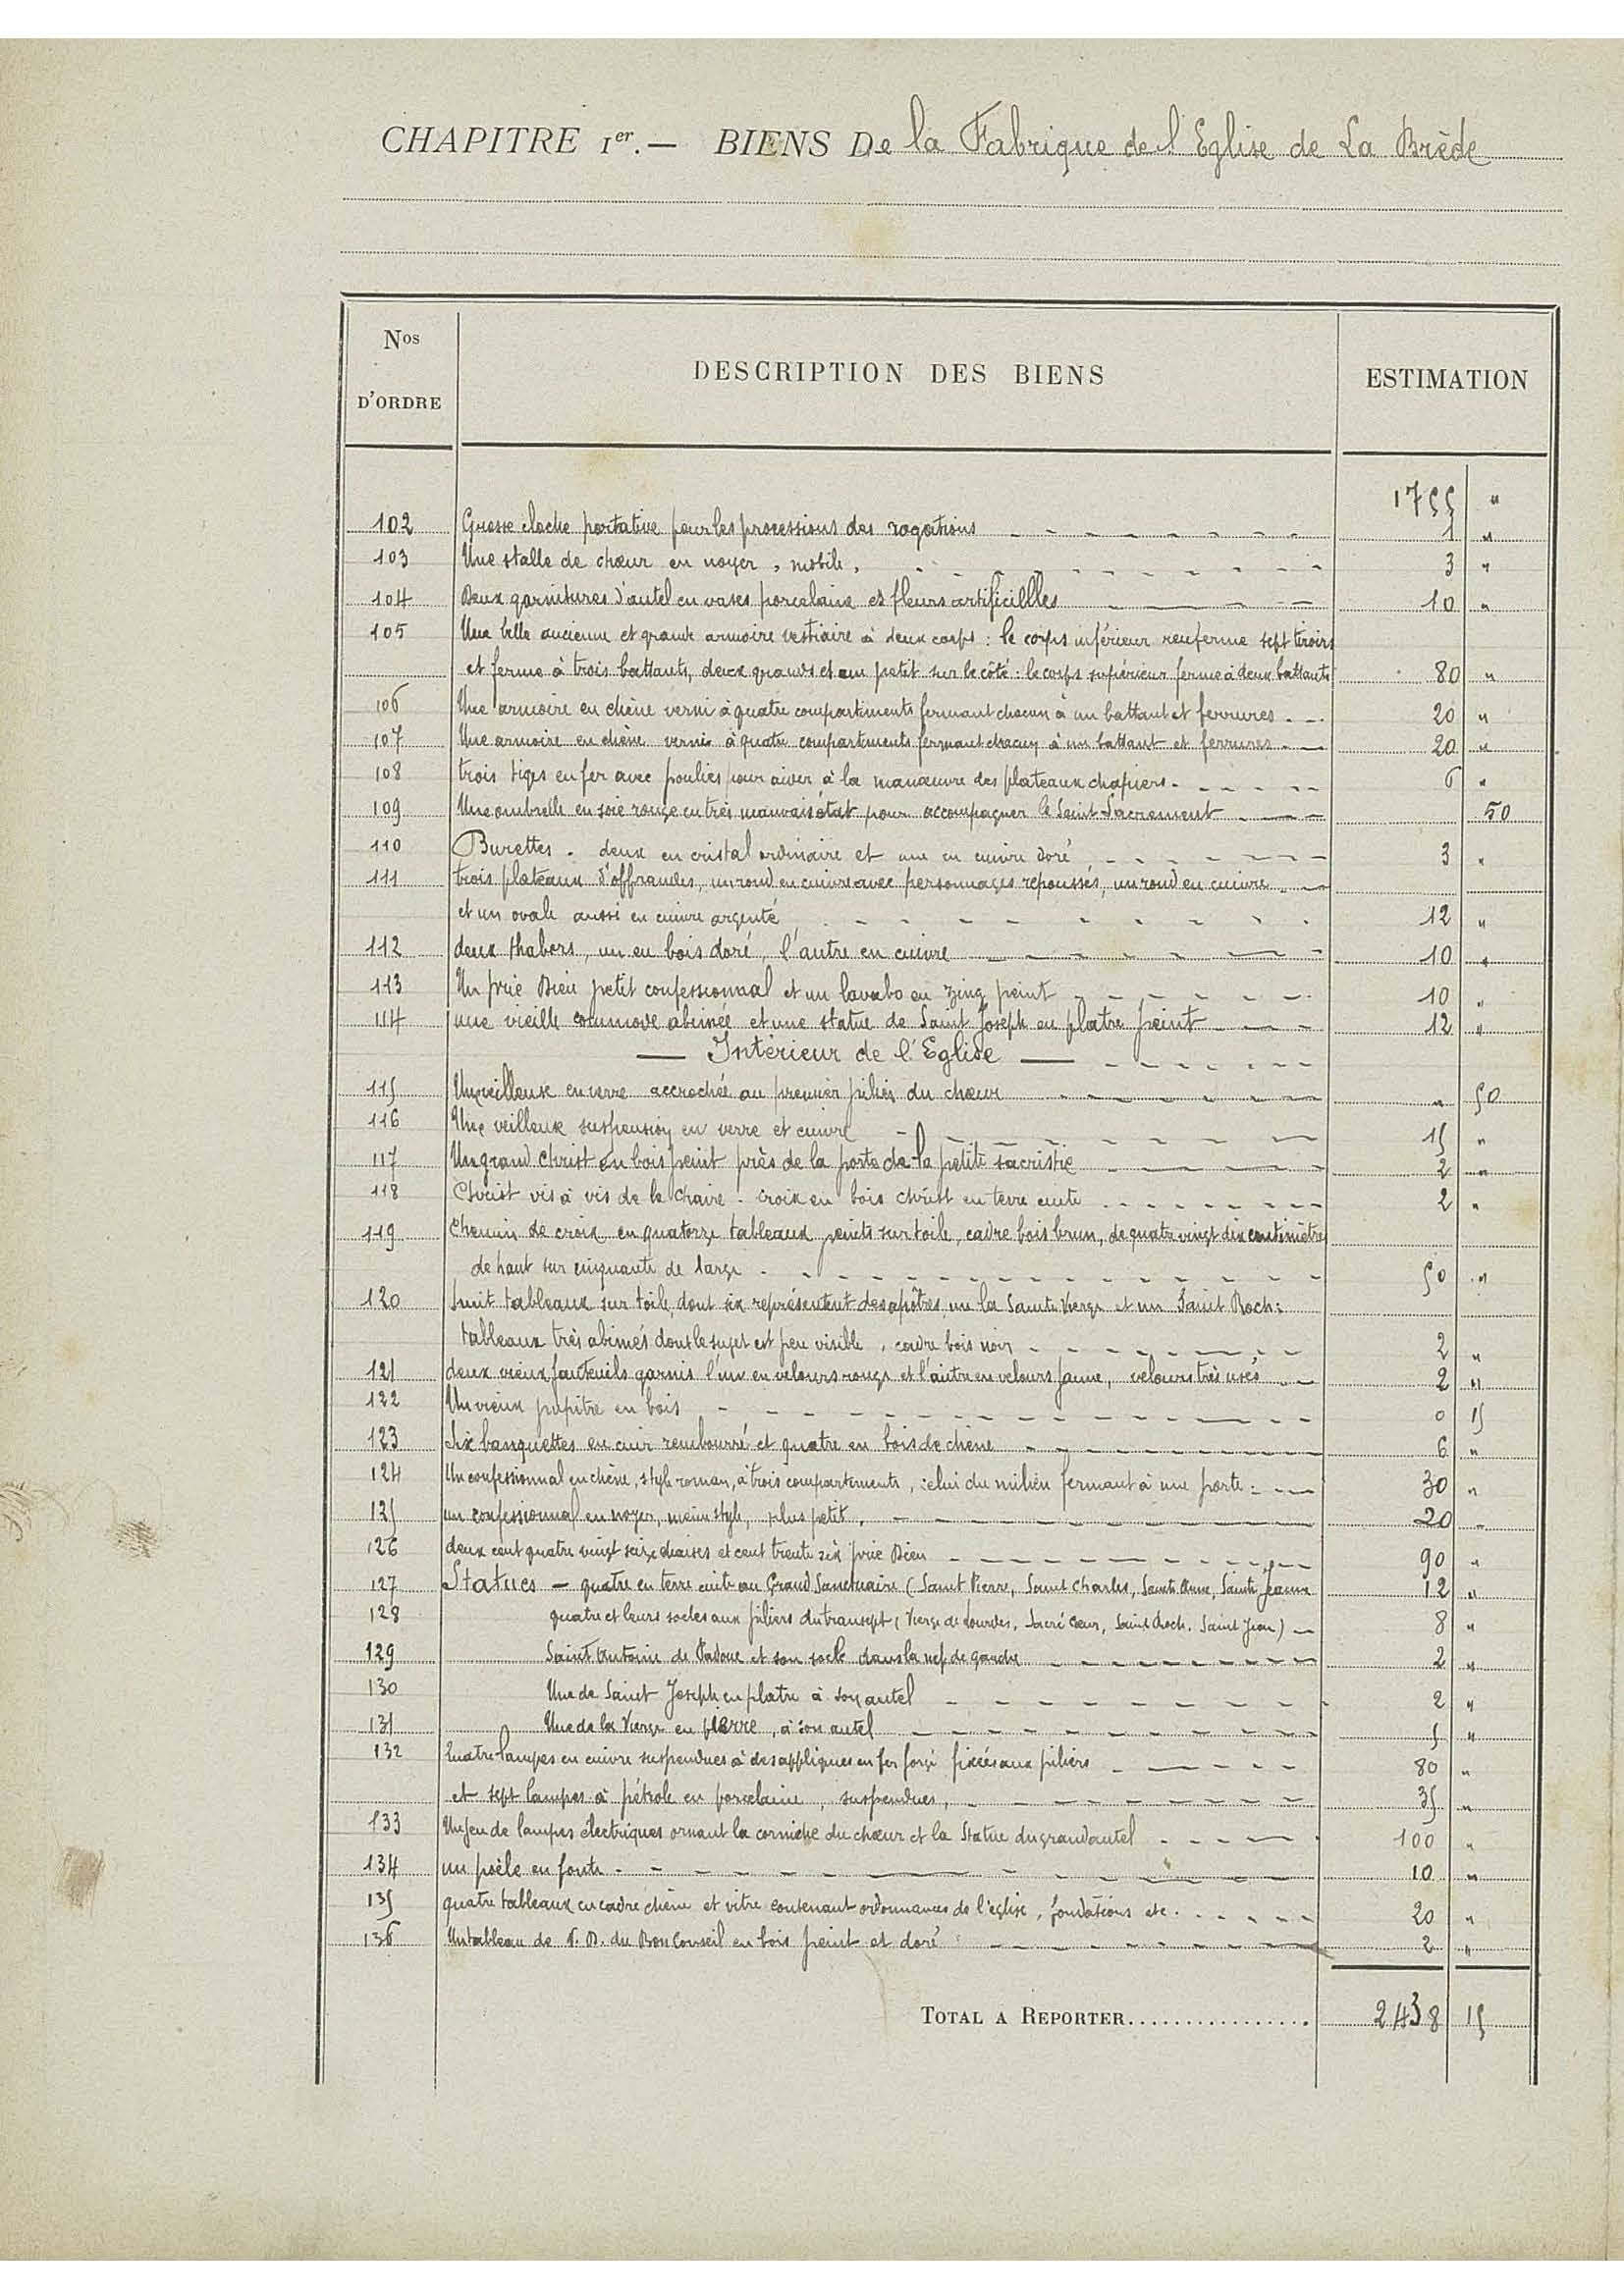 CHAPITRE Ier. — BIENS De la Fabrique de l'Eglise de La Brède
Nos D'ORDRE DESCRIPTION DES BIENS ESTIMATION
1755 "
102 Grosse cloche portative pour les processions des rogations 1 "
103 Une stalle de chœur en noyer, mobile, 3 "
104 Deux garnitures d'autel en vases porcelaine et fleurs artificielles 10 "
105 Une belle ancienne et grande armoire vestiaire à deux corps : le corps inférieur renferme sept tiroirs
et ferme à trois battants, deux grands et un petit sur le côté : le corps supérieur ferme à deux battants 80 "
106 Une armoire en chêne verni à quatre compartiments fermant chacun à un battant et ferrures 20 "
107 Une armoire en chêne verni à quatre compartiments fermant chacun à un battant et ferrures 20 "
108 trois tiges en fer avec poulies pour aider à la manœuvre des plateaux chapiers. 6 "
109 Une ombrelle en soie rouge en très mauvais état pour accompagner le Saint-Sacrement 50
110 Burettes. deux en cristal ordinaire et une en cuivre doré 3 "
111 trois plateaux d'offrandes, un rond en cuivre avec personnages repoussés, un rond en cuivre
et un ovale aussi en cuivre argenté 12 "
112 deux thabors, un en bois doré, l'autre en cuivre 10 "
113 Un prie Dieu petit confessionnal et un lavabo en zing peint 10 "
114 une vieille commode abimée et une statue de Saint Joseph en platre peint 12 "
— Intérieur de l'Eglise —
115 Une veilleuse en verre accrochée au premier pilier du chœur " 50
116 Une veilleuse suspension en verre et cuivre 15 "
117 Un grand Christ en bois peint près de la porte de la petite sacristie 2 "
118 Christ vis à vis de la chaire. croix en bois christ en terre cuite 2 "
119 Chemin de croix en quatorze tableaux peints sur toile, cadre bois brun, de quatre vingt dix centimètres
de haut sur cinquante de large 50 "
120 huit tableaux sur toile, dont six représentent des apôtres, un la Sainte Vierge et un Saint Roch :
tableaux très abimés dont le sujet est peu visible, cadre bois noir 2 "
121 deux vieux fauteuils garnis l'un en velours rouge et l'autre en velours jaune, velours très usés 2 "
122 Un vieux pupitre en bois 0 15
123 Six banquettes en cuir rembourré et quatre en bois de chêne 6 "
124 Un confessionnal en chêne, style roman, à trois compartiments, celui du milieu fermant à une porte : 30 "
125 un confessionnal en noyer, même style, plus petit. 20 "
126 deux cent quatre vingt seize chaises et cent trente six prie Dieu 90 "
127 Statues — quatre en terre cuite au Grand Sanctuaire (Saint Pierre, Saint Charles, Sainte Anne, Sainte Jeanne 12 "
128 quatre et leurs socles aux piliers du transept (Vierge de Lourdes, Sacré Cœur, Saint Roch, Saint Jean) 8 "
129 Saint Antoine de Padoue et son socle dans la nef de gauche 2 "
130 Une de Saint Joseph en platre à son autel 2 "
131 Une de la Vierge en pierre, à son autel 5 "
132 Quatre lampes en cuivre suspendues à des appliques en fer forgé fixées aux piliers 80 "
et sept lampes à pétrole en porcelaine, suspendues, 35 "
133 Un jeu de lampes électriques ornant la corniche du chœur et la Statue du grand autel 100 "
134 un poële en fonte 10 "
135 quatre tableaux en cadre chêne et vitre contenant ordonnances de l'église, fondations etc. 20 "
136 Un tableau de N. D. du Bon Conseil en bois peint et doré 2 "
TOTAL A REPORTER 2438 15